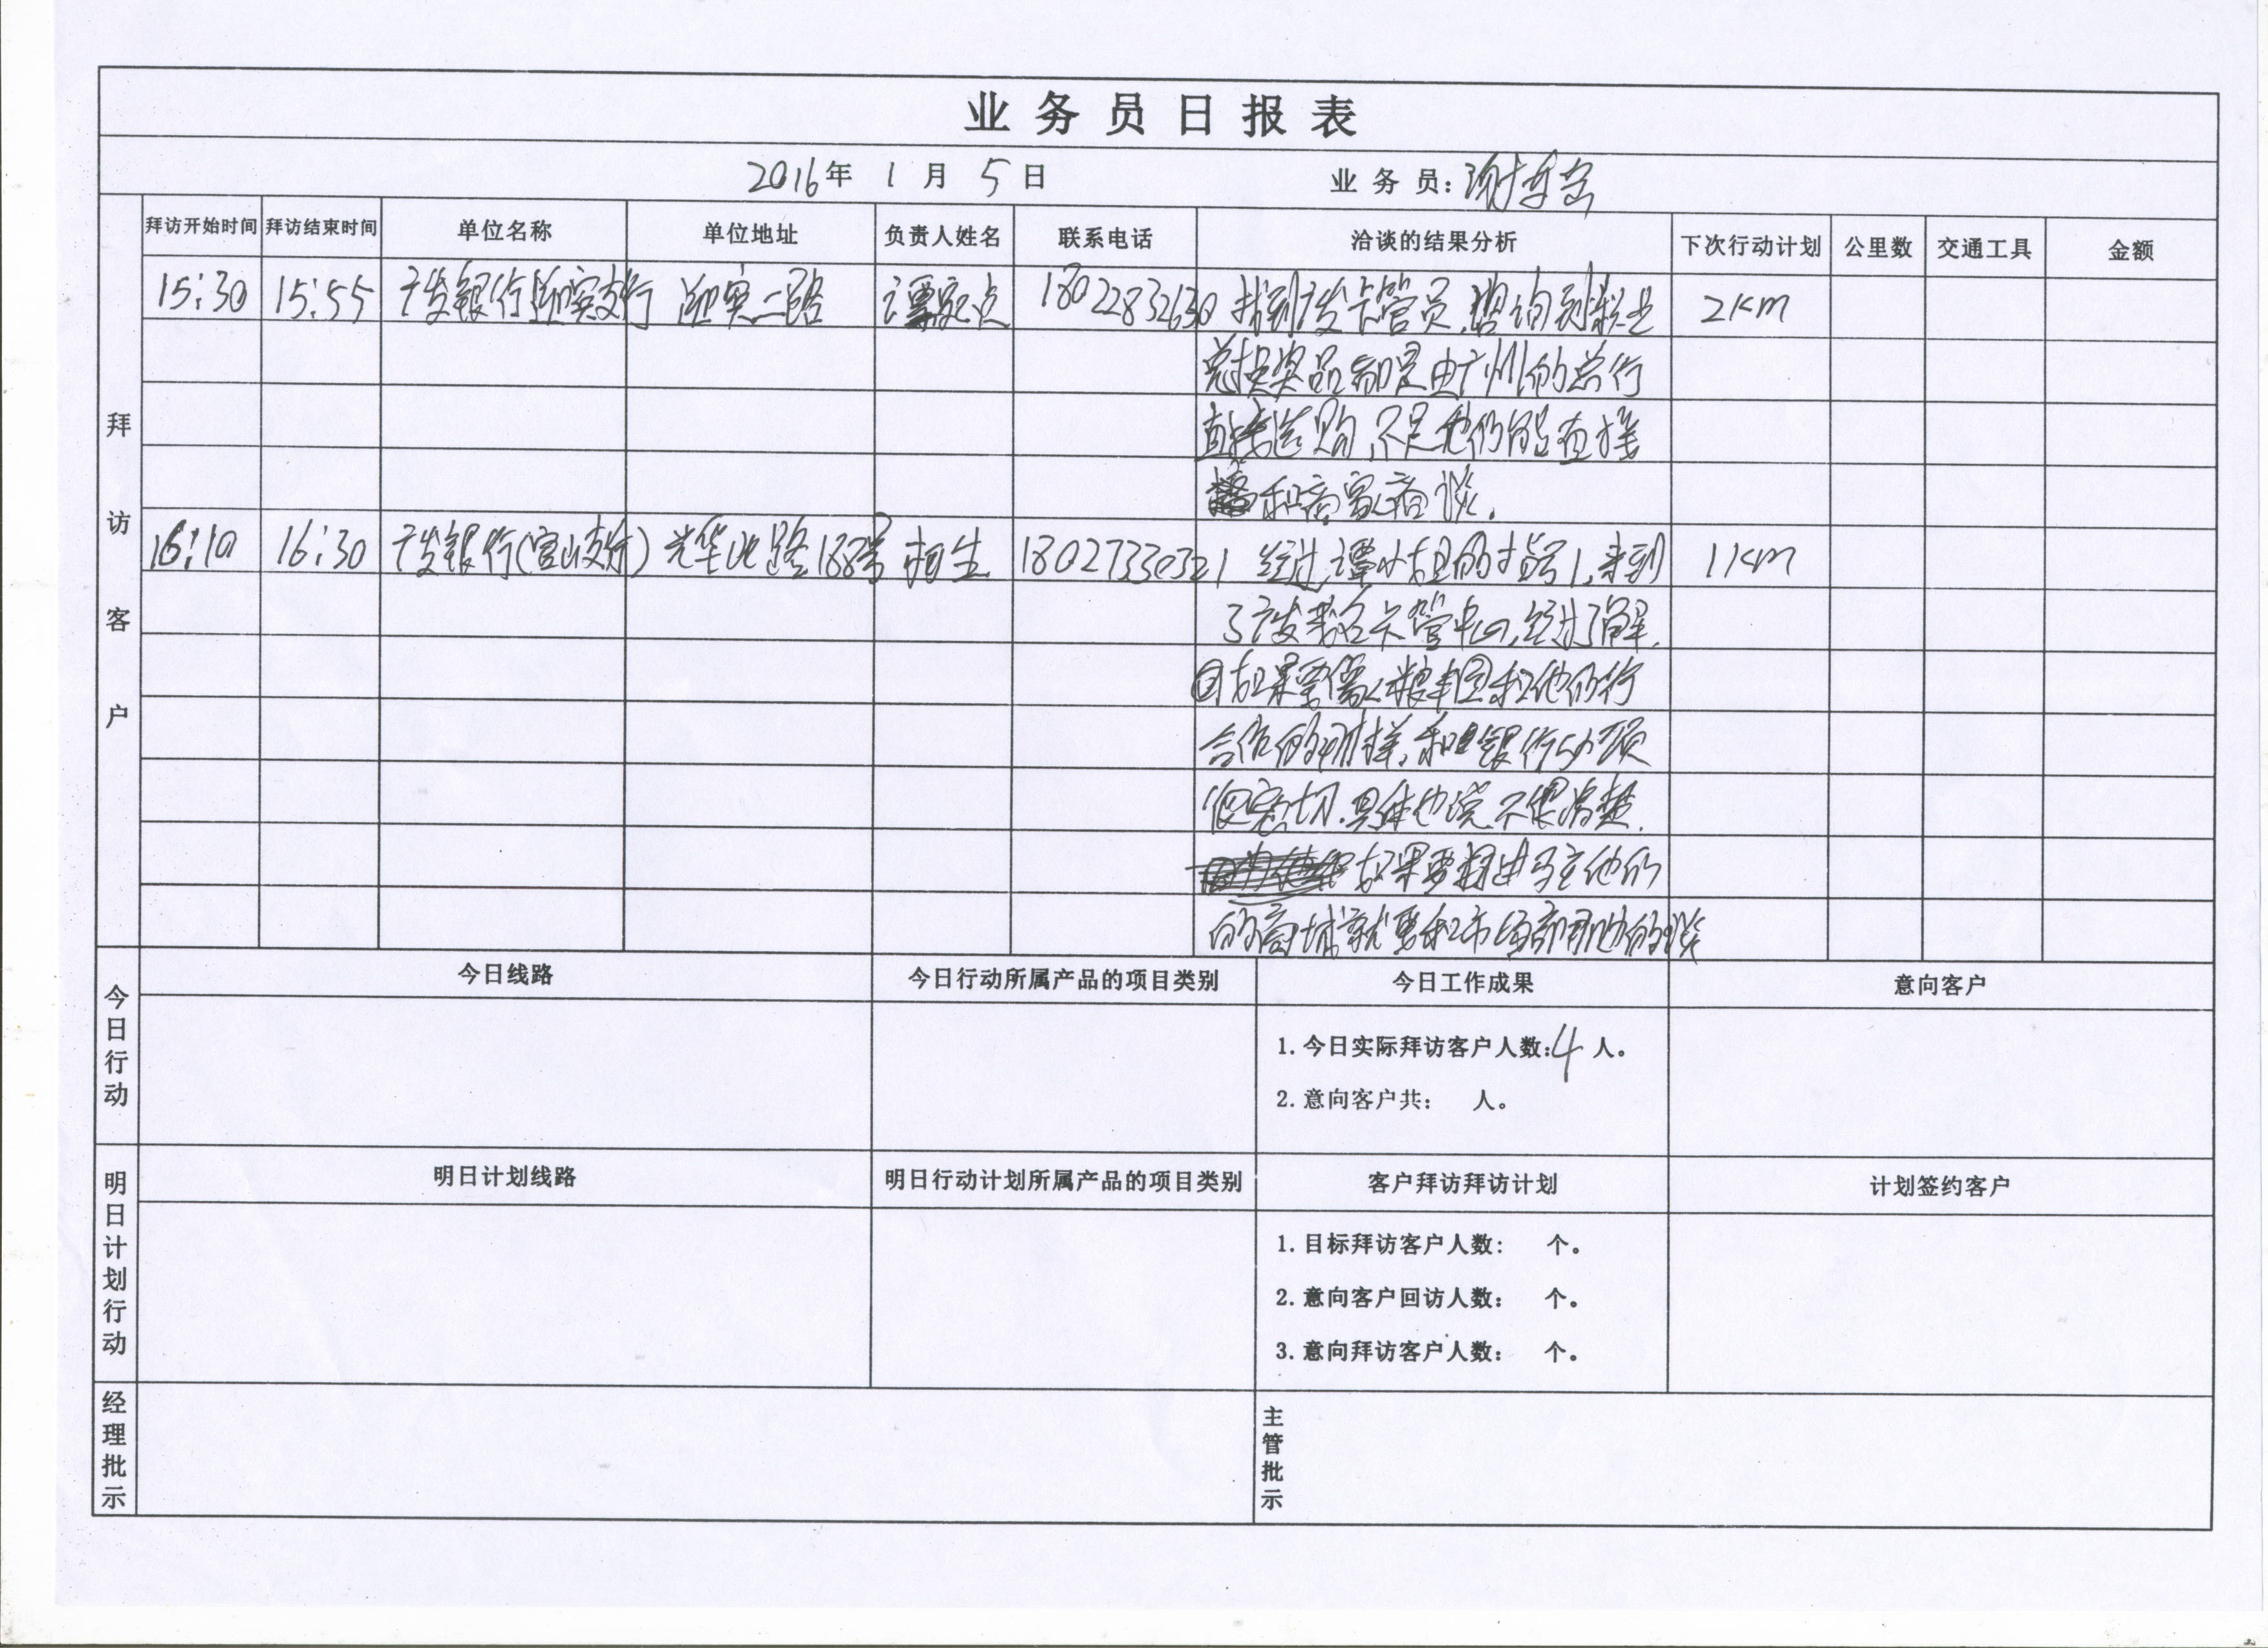 业务员日报表
2016年 1月 5日 业务员:谢
拜访客户
拜访开始时间 拜访结束时间 单位名称 单位地址 负责人姓名 联系电话 洽谈的结果分析 下次行动计划 公里数 交通工具 金额
15:30 15:55 广发银行迎宾支行 迎宾二路 谭 18022832630 找到广发卡管员,咨询到积分 2km
兑换奖品都是由广州的总行
直接选购,不是他们能直接
和商家商谈.
16:10 16:30 广发银行(官山支行) 光华北路188号 生 18027330321 经过谭小姐的指导,来到 1km
了广发卡管中心,经过了解,
如果要 和他们行
合作的 和银行
密切.具体也说不很清楚.
如果要 进驻他们
的商城就要和市场部 谈
今日行动
今日线路 今日行动所属产品的项目类别 今日工作成果 意向客户
1.今日实际拜访客户人数:4人。
2.意向客户共: 人。
明日计划行动
明日计划线路 明日行动计划所属产品的项目类别 客户拜访拜访计划 计划签约客户
1.目标拜访客户人数: 个。
2.意向客户回访人数: 个。
3.意向拜访客户人数: 个。
经理批示 主管批示